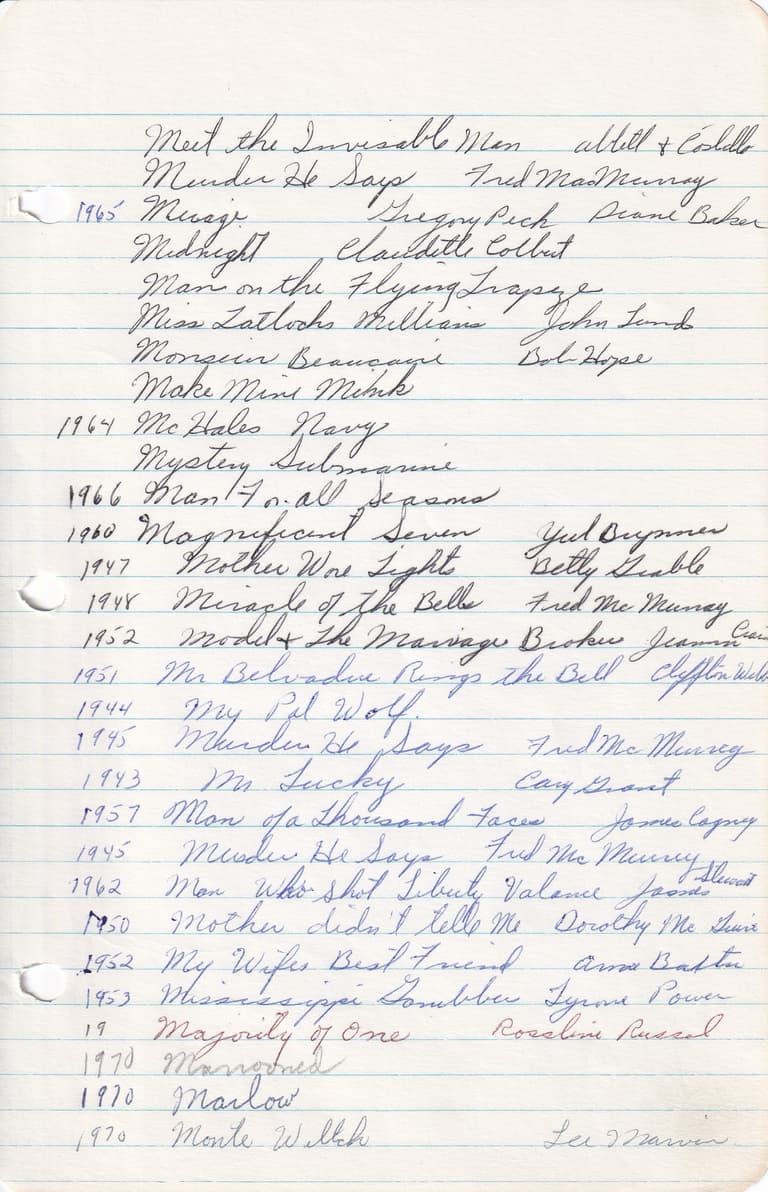 Meet the Invisable Man Abbott & Costello
Murder He Says Fred MacMurray
1965 Mirage Gregory Peck Diane Baker
Midnight Claudette Colbert
Man on the Flying Trapeze
Miss Tatlocks Millians John Lund
Monsieur Beaucaire Bob Hope
Make Mine Mink
1964 Mc Hales Navy
Mystery Submarine
1966 Man For all Seasons
1960 Magnificent Seven Yul Brynner
1947 Mother Wore Tights Betty Grable
1948 Miracle of the Bells Fred Mc Murray
1952 Model & The Marriage Broker Jeanne Crain
1951 Mr Belvadere Rings the Bell Cliffton Webb
1944 My Pal Wolf.
1945 Murder He Says Fred Mc Murray
1943 Mr Lucky Cary Grant
1957 Man of a Thousand Faces James Cagney
1945 Murder He Says Fred Mc Murray
1962 Man Who Shot Liberty Valance James Stewart
1950 Mother didn't tell Me Dorothy Mc Guire
1952 My Wifes Best Friend Anne Baxter
1953 Mississippi Gambler Tyrone Power
19 Majority of One Rossline Russel
1970 Marrooned
1970 Marlow
1970 Monte Walsh Lee Marvin